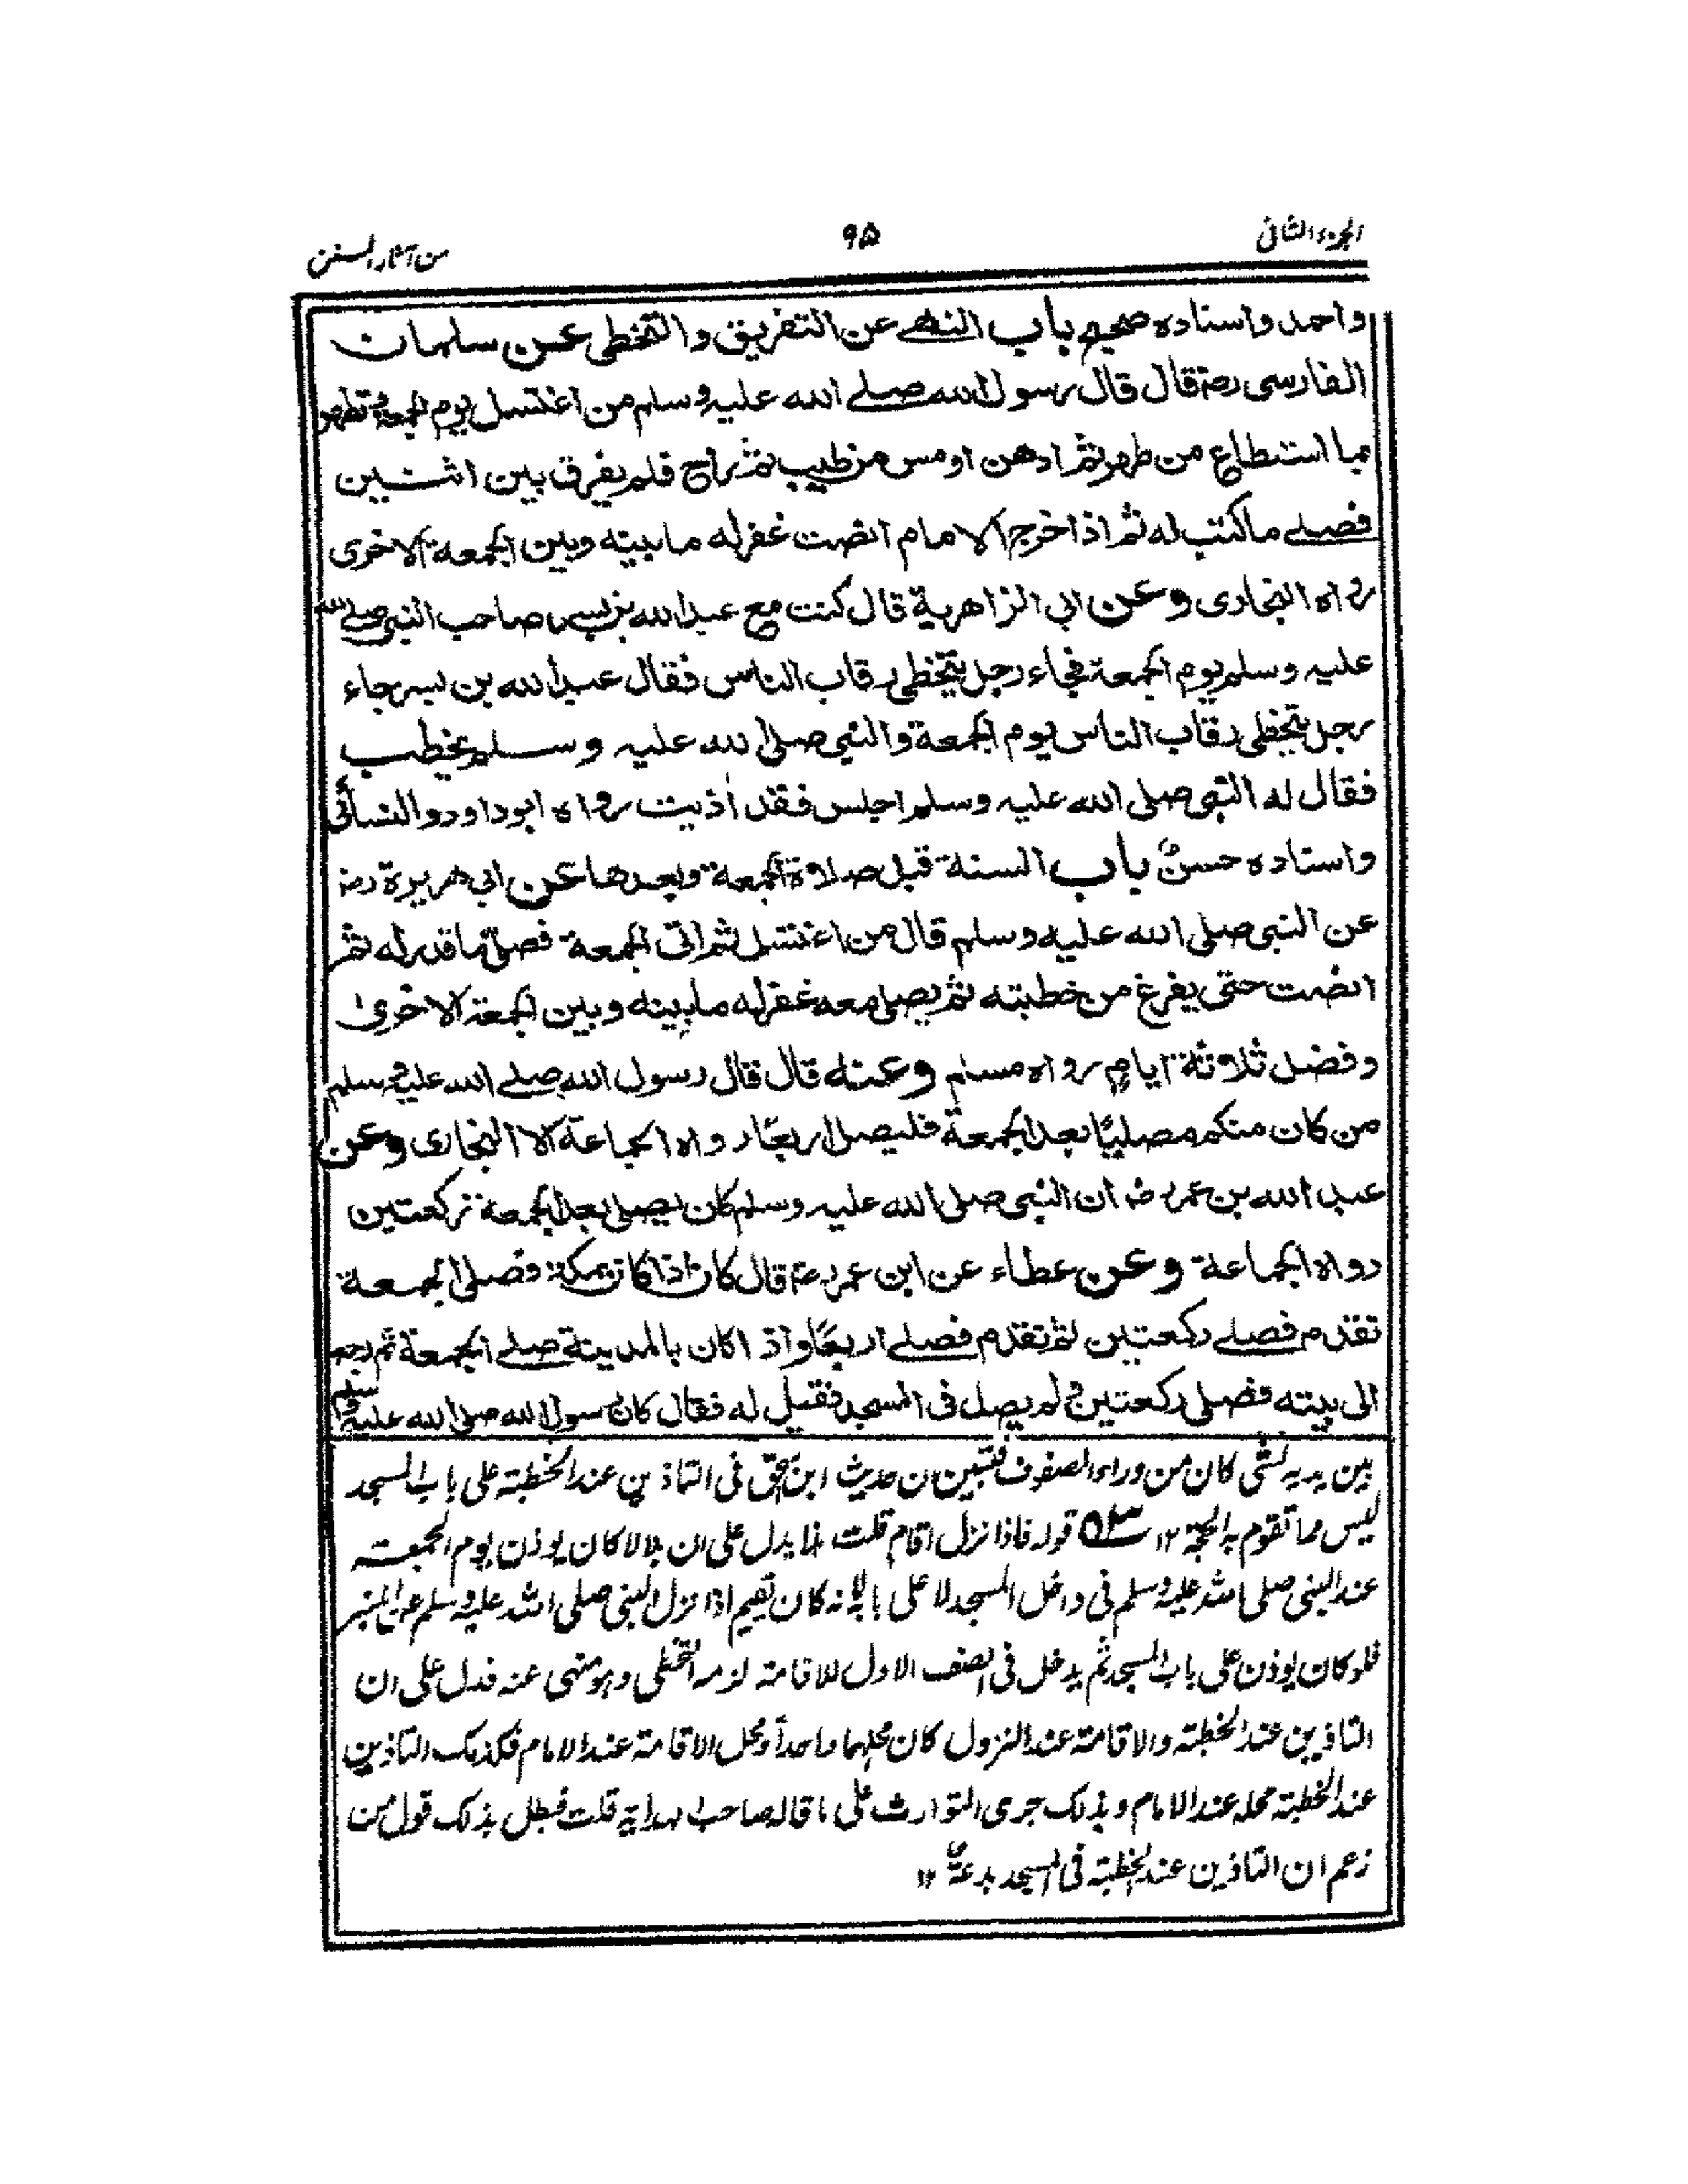 الجزء الثانى
۹۵
من آثار السنن
واحمد واسناده صحيح باب النهے عن التفريق والتخطى عن سلمان
الفارسى رضـ قال قال رسول الله صلے الله عليه وسلم من اغتسل يوم الجمعة وتطهر
بما استطاع من طهر ثم ادهن او مس من طيب ثم راح فلم يفرق بين اثنين
فصلے ما كتب له ثم اذا خرج الامام انصت غفر له ما بينه وبين الجمعة الاخرى
رواه البخارى وعن ابى الزاهرية قال كنت مع عبد الله بن بسر صاحب النبى صلے الله
عليه وسلم يوم الجمعة فجاء رجل يتخطى رقاب الناس فقال عبد الله بن بسر جاء
رجل يتخطى رقاب الناس يوم الجمعة والنبى صلى الله عليه وسلم يخطب
فقال له النبى صلى الله عليه وسلم اجلس فقد اٰذيت رواه ابوداود والنسائى
واسناده حسنٌ باب السنة قبل صلاة الجمعة وبعدها عن ابى هريرة رضـ
عن النبى صلى الله عليه وسلم قال من اغتسل ثم اتى الجمعة فصلى ما قدر له ثم
انصت حتى يفرغ من خطبته ثم يصلى معه غفر له ما بينه وبين الجمعة الاخرىٰ
وفضل ثلاثة ايام رواه مسلم وعنه قال قال رسول الله صلے الله عليه وسلم
من كان منكم مصليًا بعد الجمعة فليصل اربعًا رواه الجماعة الا البخارى وعن
عبد الله بن عمر رضـ ان النبى صلى الله عليه وسلم كان يصلى بعد الجمعة ركعتين
رواه الجماعة وعن عطاء عن ابن عمر رضـ قال كان اذا كان بمكة فصلى الجمعة
تقدم فصلے ركعتين ثم تقدم فصلے اربعًا واذا كان بالمدينة صلے الجمعة ثم رجع
الى بيته فصلى ركعتين ولم يصل فى المسجد فقيل له فقال كان رسول الله صلى الله عليه وسلم
بين يديه لشئ كان من وراء الصفوف فتبين ان حديث ابن اسحق فى التاذين عند الخطبة على باب المسجد
ليس مما تقوم به الحجة ۱۲ قوله فاذا نزل اقام قلت هذا يدل على ان بلالا كان يوذن يوم الجمعة
عند النبى صلى الله عليه وسلم فى داخل المسجد لا على بابه لانه كان يقيم اذا نزل النبى صلى الله عليه وسلم عن المنبر
فلو كان يوذن على باب المسجد ثم يدخل فى الصف الاول للاقامة لزمه التخطى وهو منهى عنه فدل على ان
التاذين عند الخطبة والاقامة عند النزول كان محلهما واحداً ومحل الاقامة عند الامام فكذلك التاذين
عند الخطبة محله عند الامام وبذلك جرى التوارث على ما قاله صاحب الهداية قلت فبطل بذلك قول من
زعم ان التاذين عند الخطبة فى المسجد بدعةٌ ۱۲